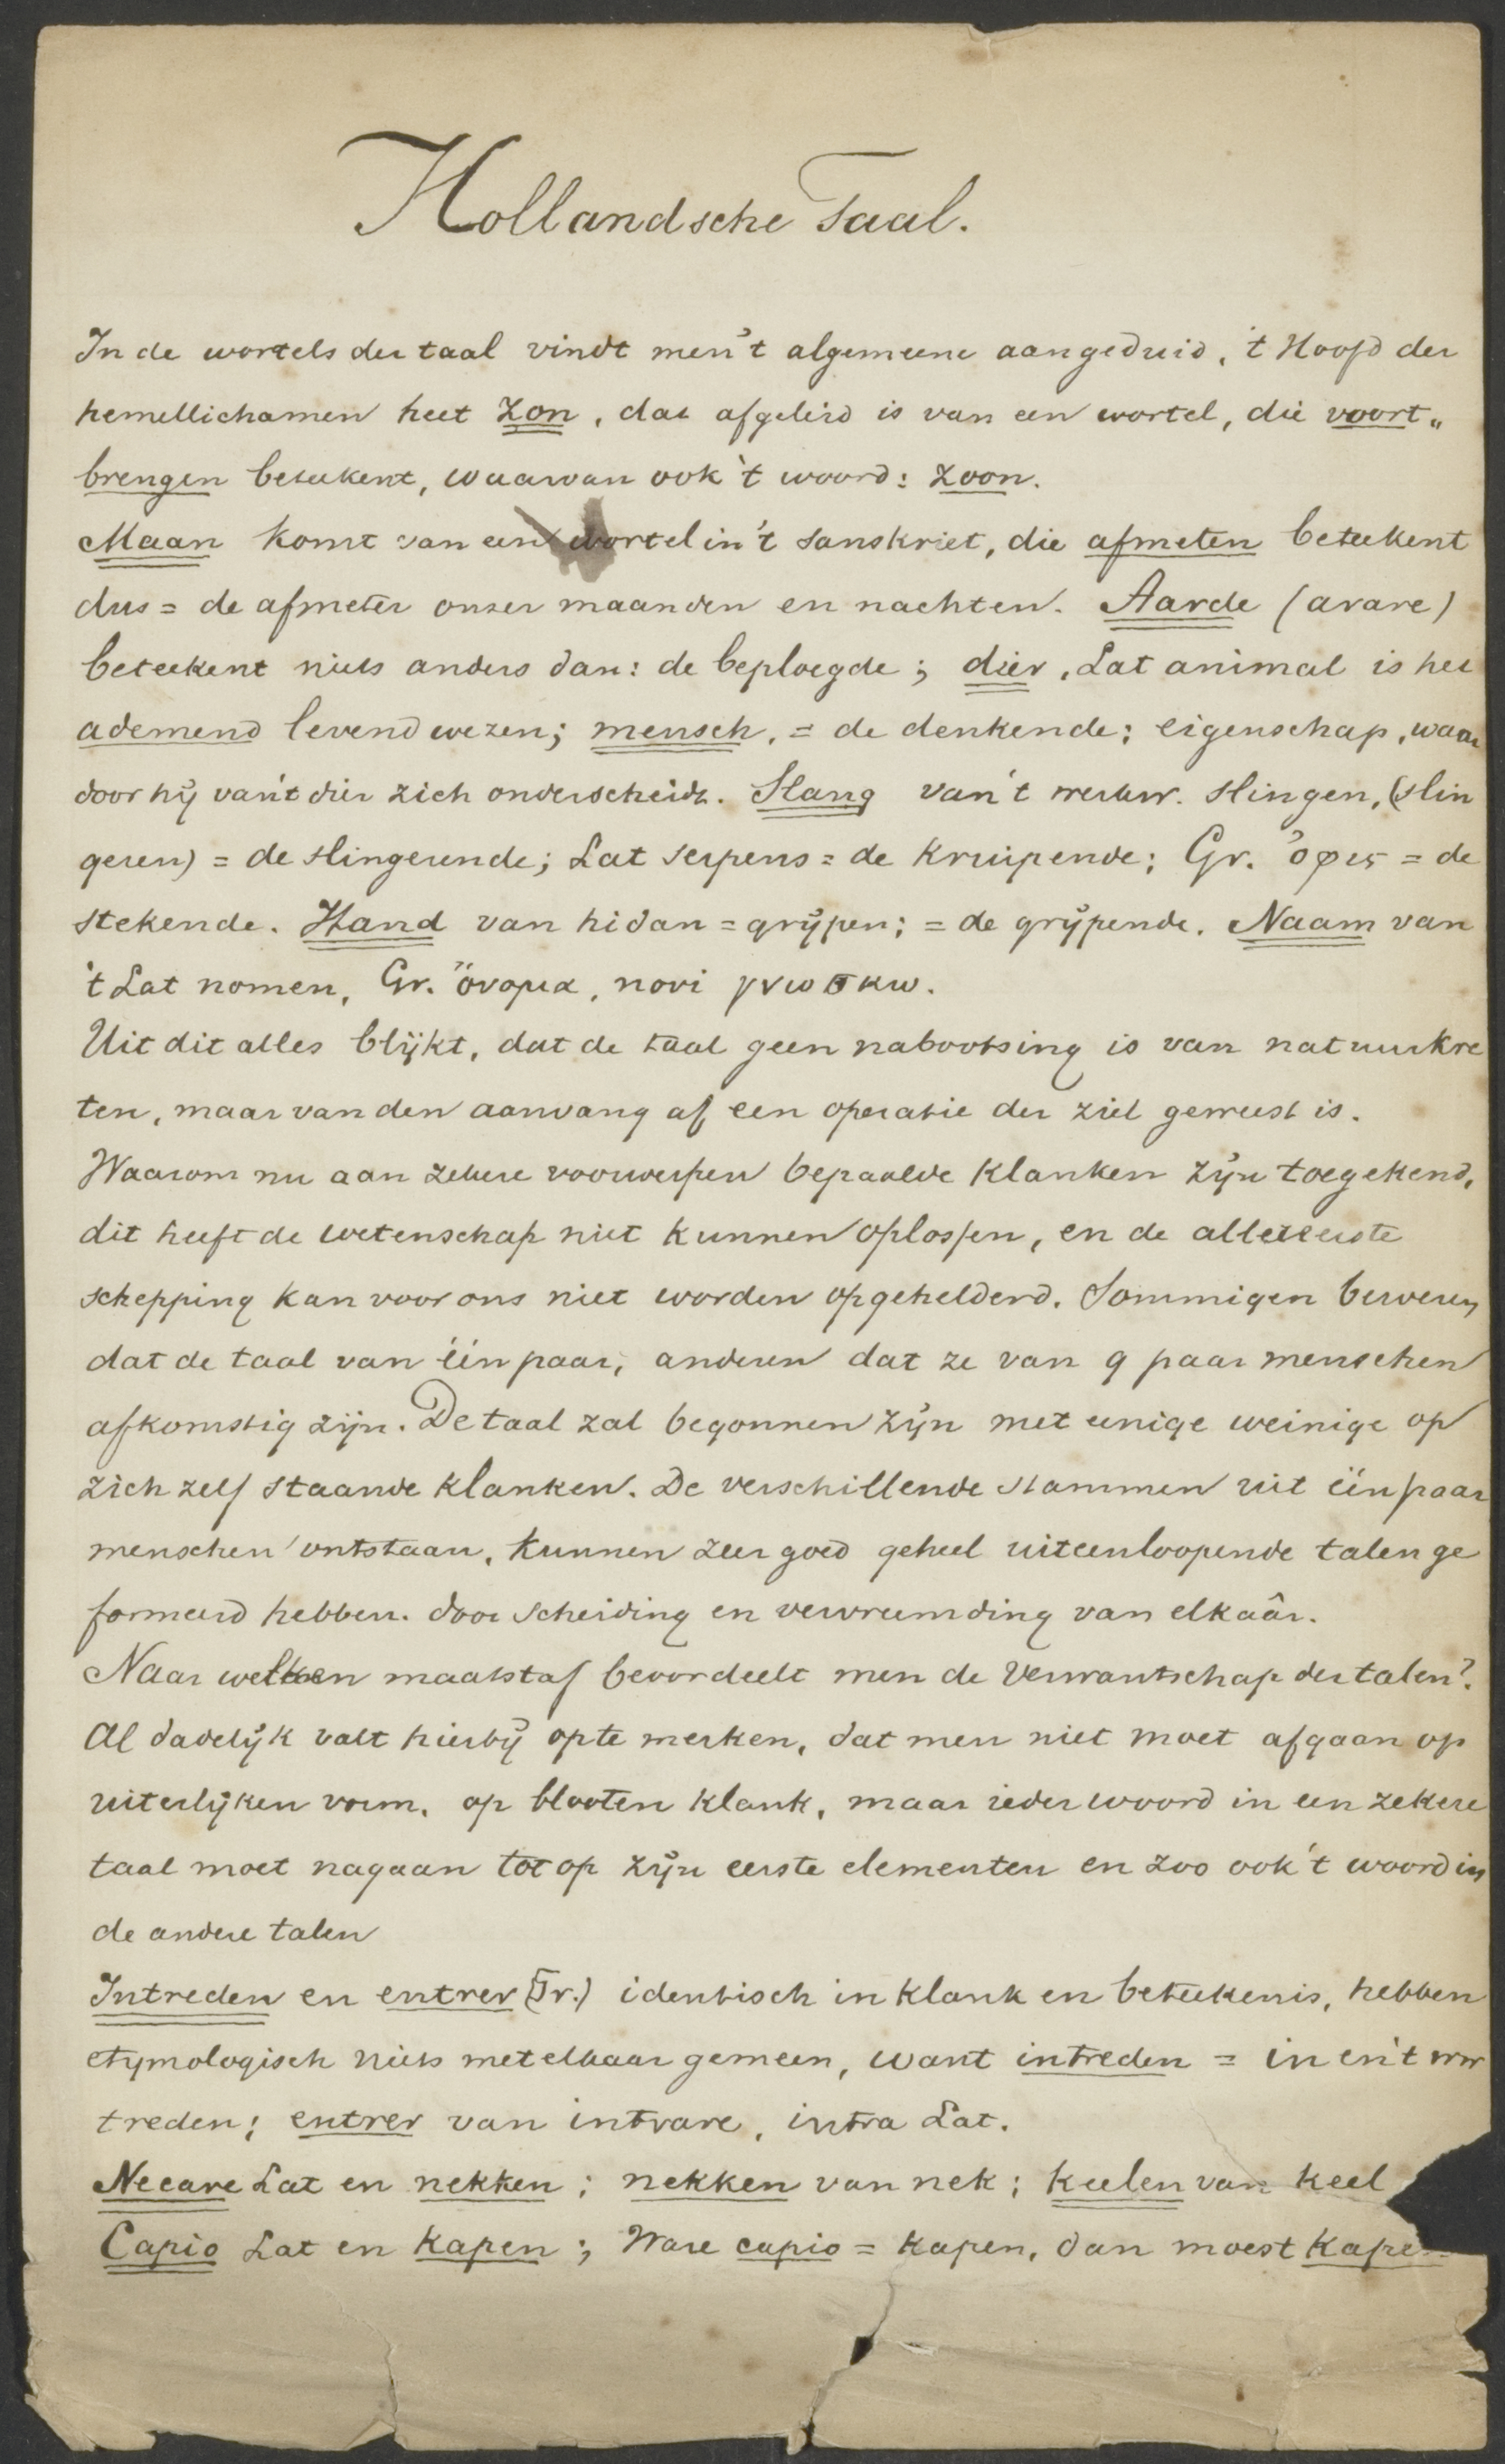 Hollandsche Taal.
In de wortels der taal vindt men 't algemeene aangeduid, 't Hoofd der
hemellichamen heet zon, dat afgeleid is van een wortel, die voort„
brengen beteekent, waarvan ook 't woord: zoon.
Maan komt van een wortel in 't Sanskriet, die afmeten beteekent
dus = de afmeter onzer maanden en nachten. Aarde (arare)
beteekent niets anders dan: de beploegde; dier, Lat animal is het
ademend levend wezen; mensch, = de denkende; eigenschap, waar
door hij van 't dier zich onderscheidt. Slang van 't werkw. slingen, (slin
geren) = de slingerende; Lat serpens = de kruipende; Gr. ὄφις = de
stekende. Hand van hidan = grijpen; = de grijpende. Naam van
't Lat nomen, Gr. ὄνομα, novi γνωσκω.
Uit dit alles blijkt, dat de taal geen nabootsing is van natuurkre
ten, maar van den aanvang af een operatie der ziel geweest is.
Waarom nu aan zekere voorwerpen bepaalde klanken zijn toegekend,
dit heeft de wetenschap niet kunnen oplossen, en de allereerste
schepping kan voor ons niet worden opgehelderd. Sommigen beweren
dat de taal van één paar, anderen dat ze van 9 paar menschen
afkomstig zijn. De taal zal begonnen zijn met eenige weinige op
zich zelf staande klanken. De verschillende stammen uit één paar
menschen ontstaan, kunnen zeer goed geheel uiteenloopende talen ge
formeerd hebben. door scheiding en vervreemding van elkaâr.
Naar welken maatstaf beoordeelt men de verwantschap der talen?
Al dadelijk valt hierbij op te merken, dat men niet moet afgaan op
uiterlijken vorm, op blooten klank, maar ieder woord in een zekere
taal moet nagaan tot op zijn eerste elementen en zoo ook 't woord in
de andere talen
Intreden en entrer (Fr.) identisch in klank en beteekenis, hebben
etymologisch niets met elkaar gemeen, want intreden = in en 't ww
treden; entrer van intrare, intra Lat.
Necare Lat en nekken; nekken van nek; keelen van keel
Capio Lat en kapen; Ware capio = kapen, dan moest kapen